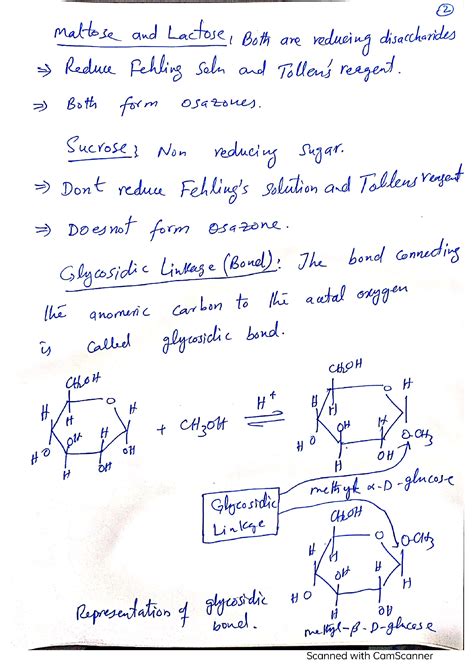 2
Maltose and Lactose, Both are reducing disaccharides
⇒ Reduce Fehling Soln and Tollen's reagent.
⇒ Both form osazones.
Sucrose; Non reducing sugar.
⇒ Dont reduce Fehling's solution and Tollens reagent
⇒ Does not form osazone.
Glycosidic Linkage (Bond): The bond connecting
the anomeric carbon to the acetal oxygen
is called glycosidic bond.
CH2OH
O
H H H
OH H
H O OH
H OH
+ CH3OH
H+
⇌
CH2OH
O H
H H
OH H
H O O-CH3
H OH
methyl α-D-glucose
Glycosidic
Linkage
CH2OH
O O-CH3
H H
OH H H
H O
H OH
methyl-β-D-glucose
Representation of glycosidic
bond.
Scanned with CamScanner